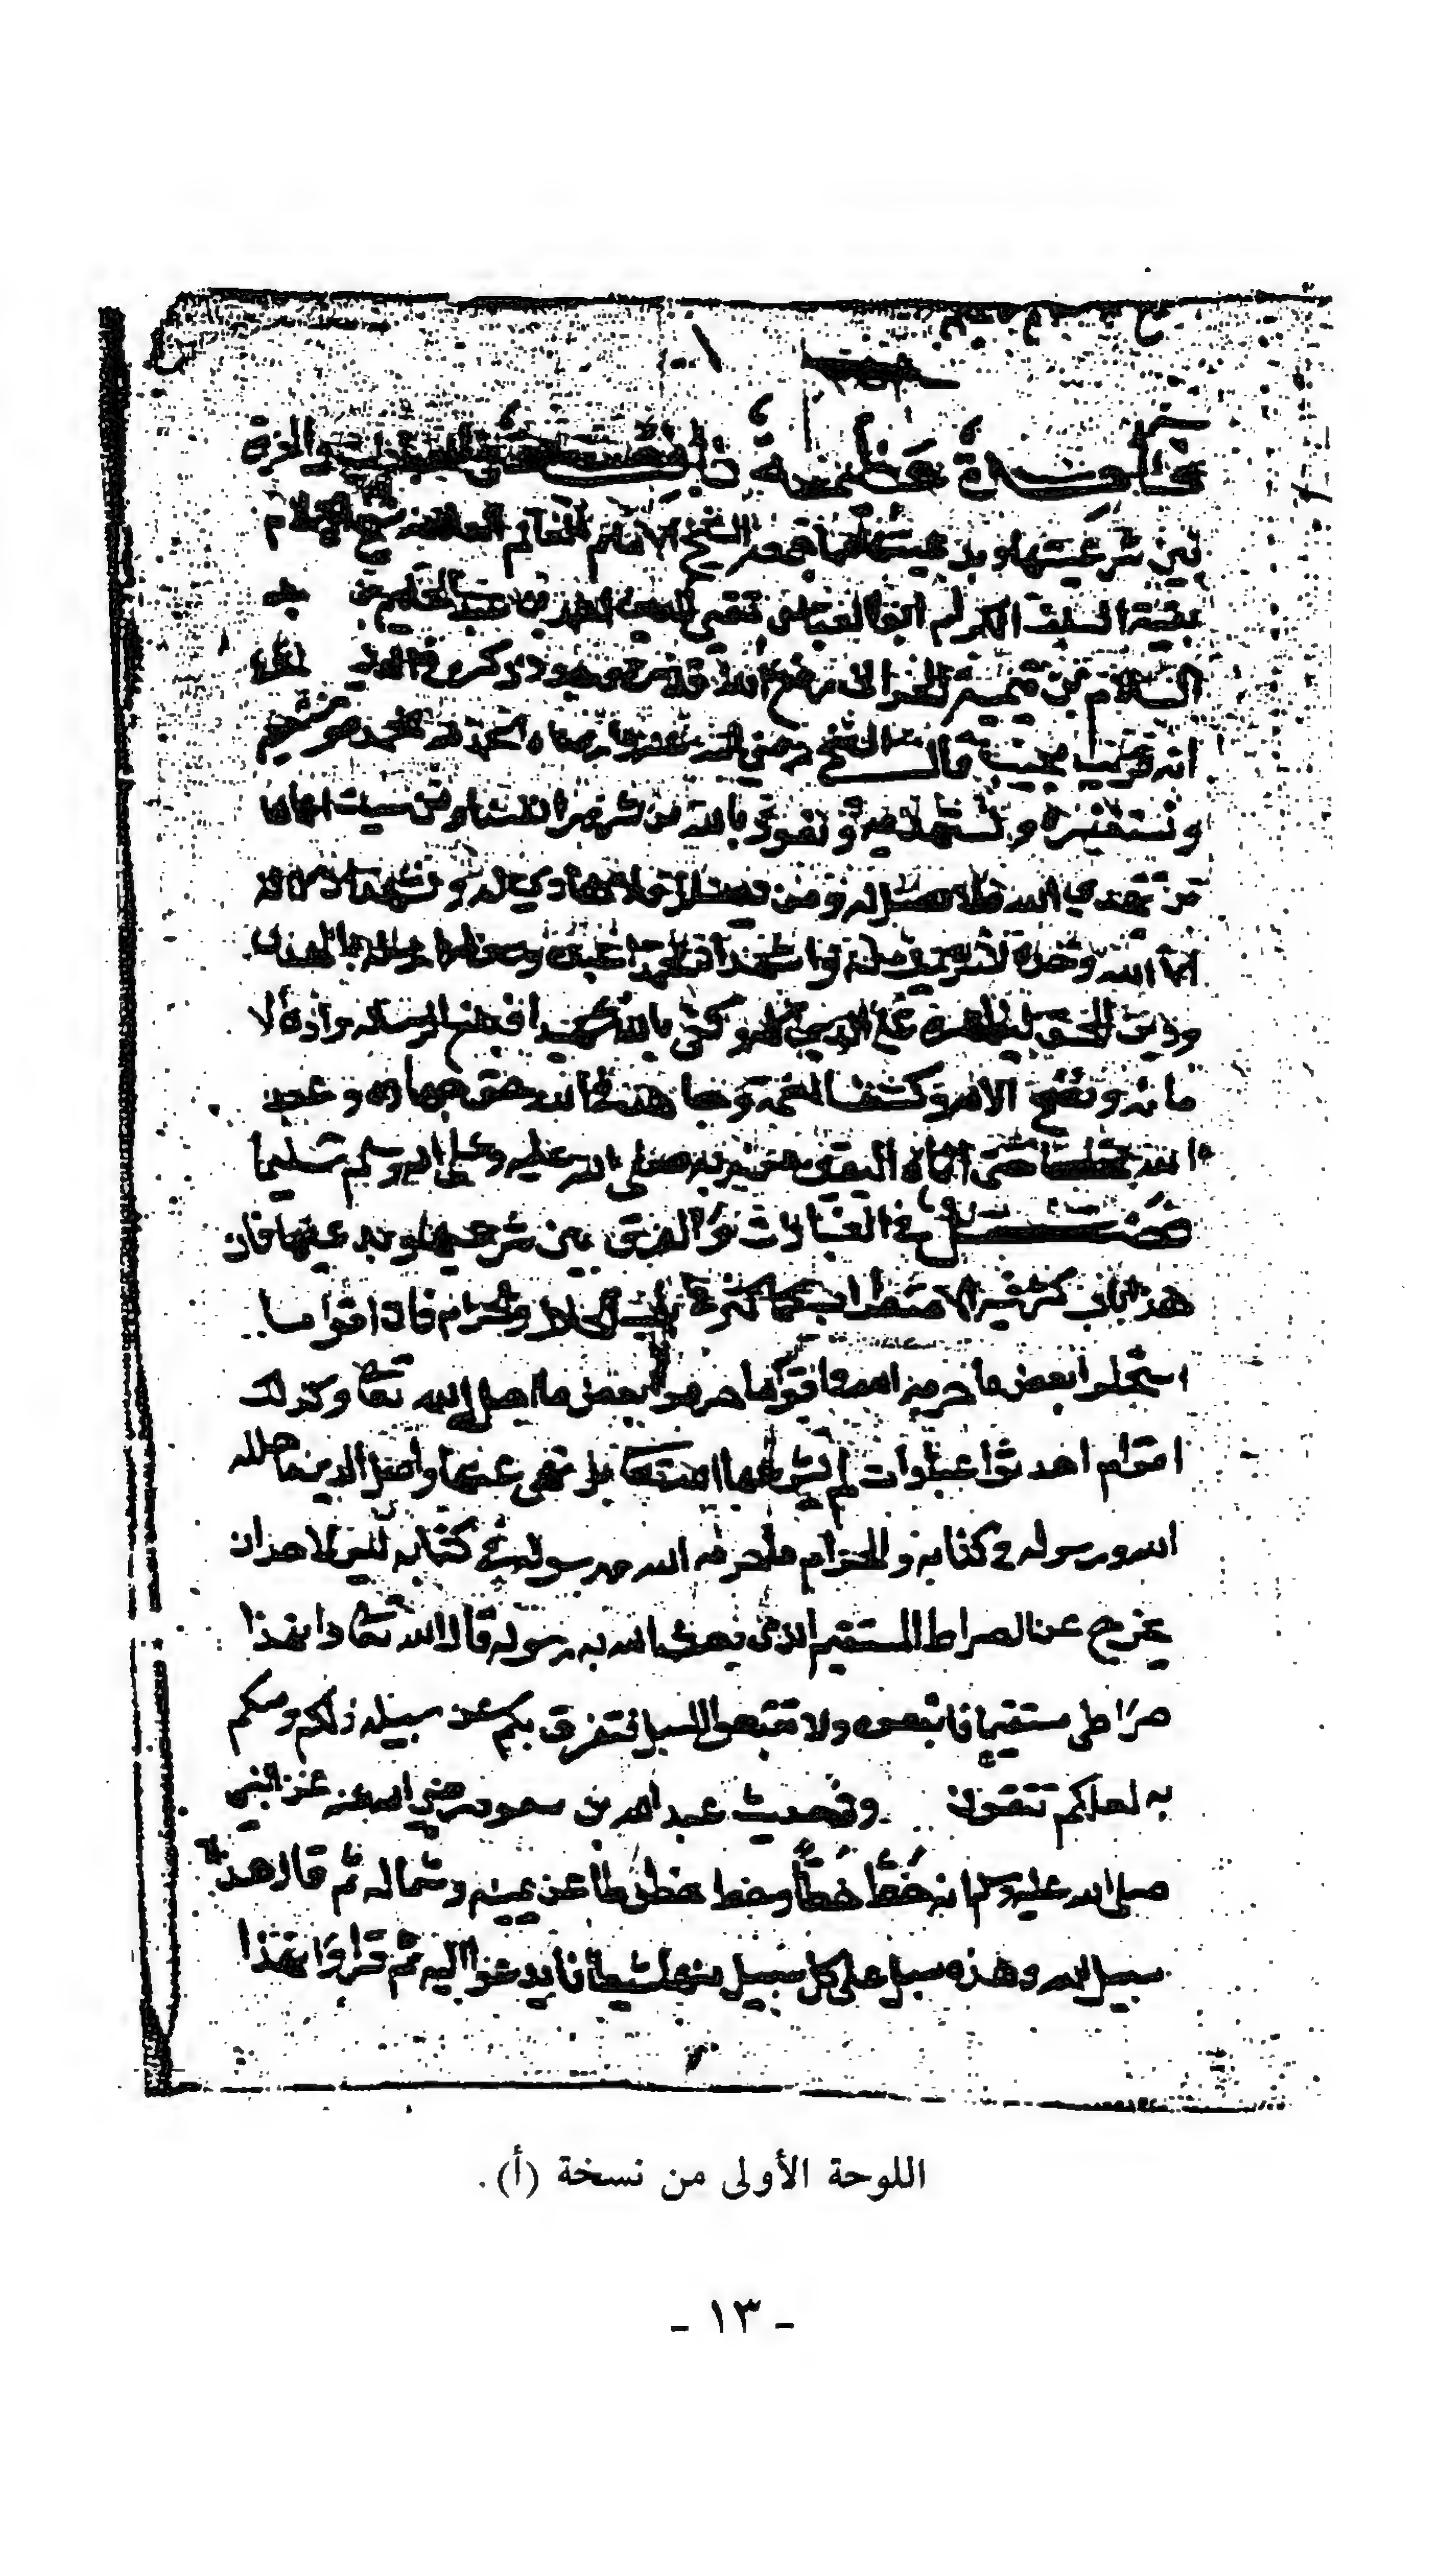 قاعدة عظيمة في العبادات والفرق
بين شرعيتها وبدعيتها الشيخ الامام العالم العلامة شيخ الاسلام
بقية السلف الكرام ابو العباس تقي الدين احمد بن عبد الحليم بن عبد
السلام بن تيمية الحراني
قال الشيخ رضي الله عنه الحمد لله نحمده
ونستغفره ونستهديه ونعوذ بالله من شرور انفسنا ومن سيئات اعمالنا
من يهدي الله فلا مضل له ومن يضلل فلا هادي له ونشهد ان لا اله
الا الله وحده لا شريك له واشهد ان محمدا عبده ورسوله ارسله بالهدى
ودين الحق ليظهره على الدين كله وكفى بالله شهيدا فبلغ الرسالة وادى الا
مانه ونصح الامه وكشف الغمه وجاهد في الله حق جهاده وعبد
الله مخلصا حتى اتاه اليقين من ربه صلى الله عليه وعلى اله وسلم تسليما
فصل في العبادات والفرق بين شرعيها وبدعيها فان
هذا باب كثر فيه الاضطراب كما كثر في باب الحلال والحرام فان اقواما
استحلوا بعض ما حرمه الله واقواما حرموا بعض ما احل الله تعالى وكذلك
اقوام احدثوا عبادات لم يشرعها الله بل نهى عنها واصل الدين ما حلله
الله ورسوله في كتابه والحرام ما حرمه الله ورسوله في كتابه ليس لاحد ان
يخرج عن الصراط المستقيم الذي بعث الله به رسوله قال الله تعالى وان هذا
صراطي مستقيما فاتبعوه ولا تتبعوا السبل فتفرق بكم عن سبيله ذلكم وصكم
به لعلكم تتقون وفي حديث عبد الله بن مسعود رضي الله عنه عن النبي
صلى الله عليه وسلم انه خط خطا وخط خطوطا عن يمينه وشماله ثم قال هذه
سبيل الله وهذه سبل على كل سبيل منها شيطان يدعوا اليه ثم قرا وان هذا
اللوحة الأولى من نسخة (أ).
- ١٣ -